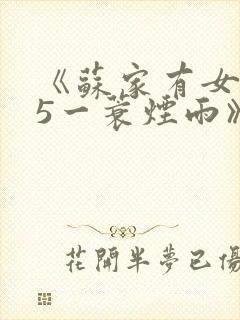 《蘇家有女
5一蓑煙雨》
花開半夢已傷